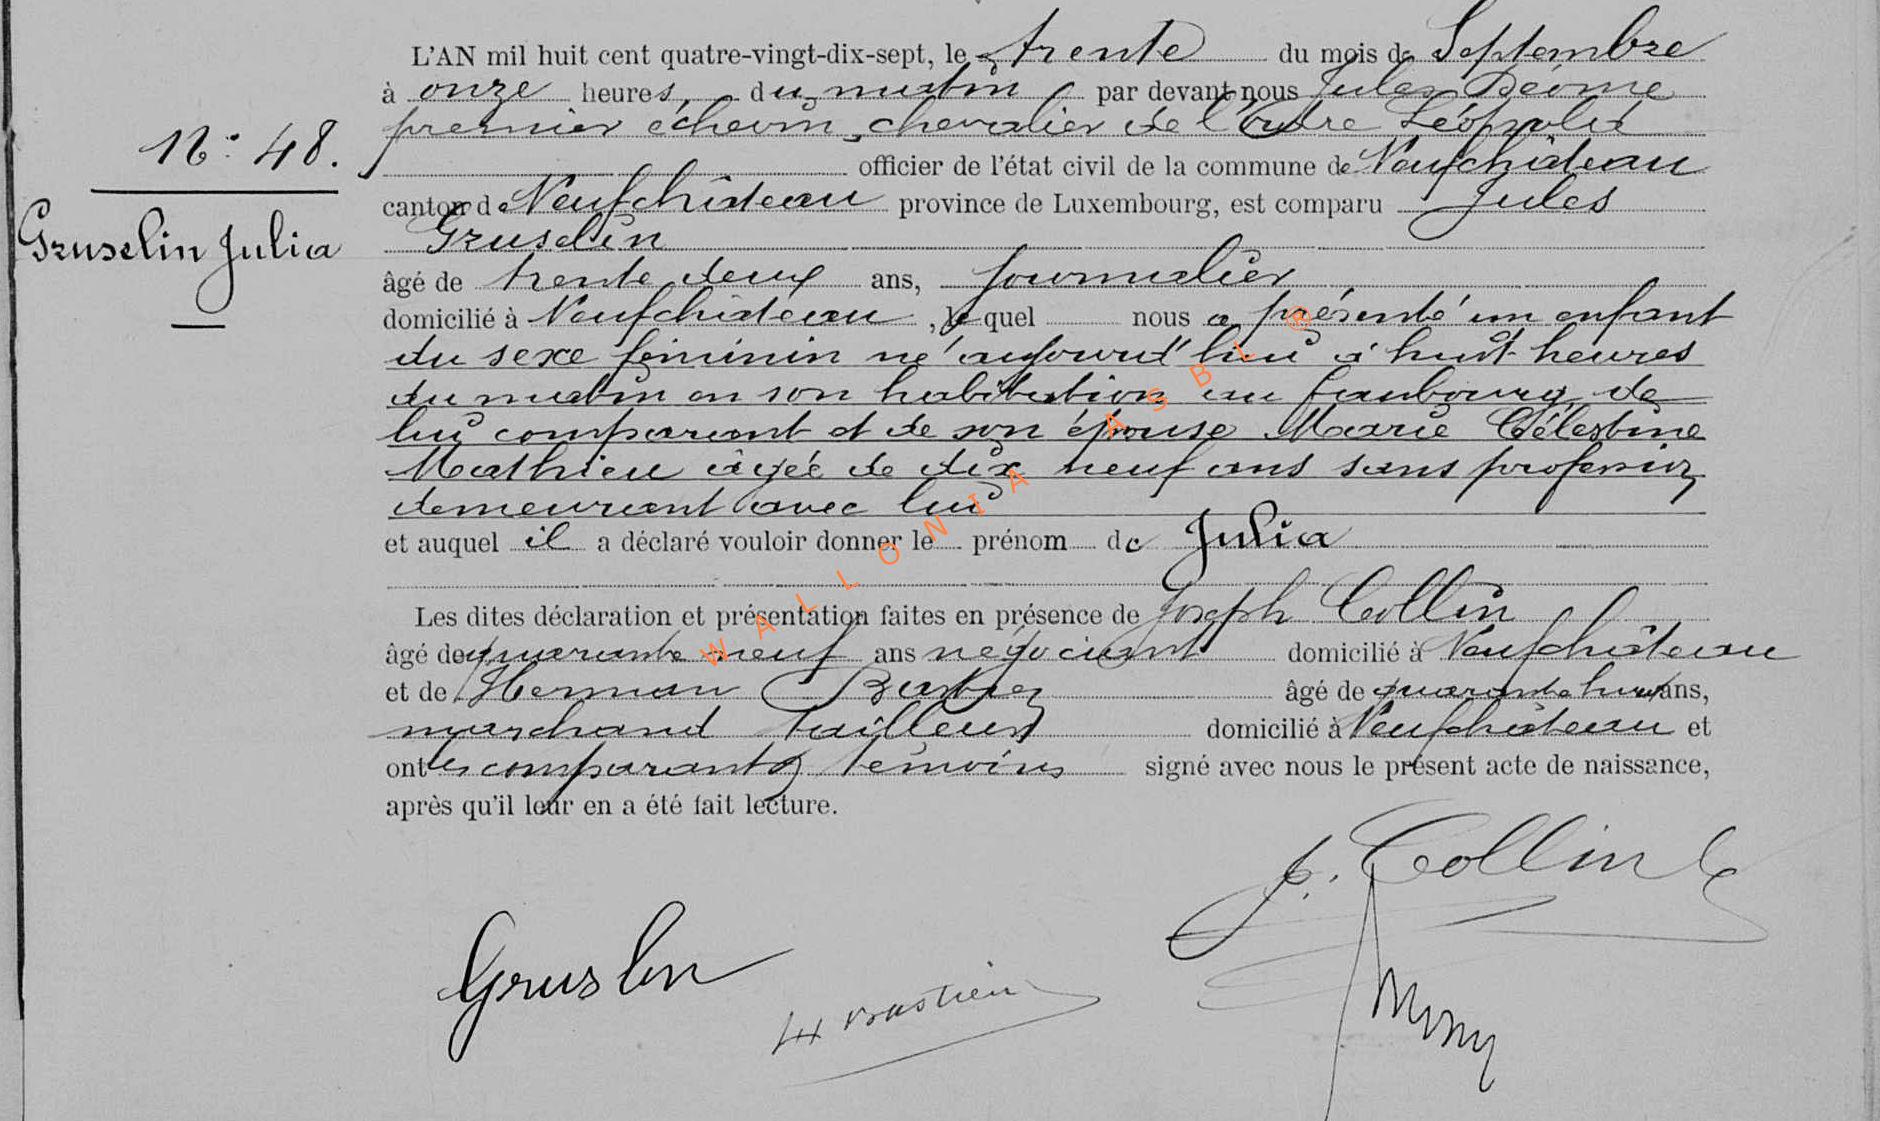 L'AN mil huit cent quatre-vingt-dix-sept, le trente du mois de Septembre
à onze heures, du matin par devant nous Jules Déome
premier échevin, chevalier de l'Ordre Léopold
officier de l'état civil de la commune de Neufchâteau
N° 48.
canton de Neufchâteau province de Luxembourg, est comparu Jules
Gruselin Julia
Gruselin
âgé de trente deux ans, journalier
domicilié à Neufchâteau, lequel nous a présenté un enfant
du sexe féminin né aujourd'hui à huit heures
du matin en son habitation au faubourg de
lui comparant et de son épouse Marie Célestine
Mathieu âgée de dix neuf ans sans profession
demeurant avec lui
et auquel il a déclaré vouloir donner le prénom de Julia
Les dites déclaration et présentation faites en présence de Joseph Collin
âgé de quarante neuf ans négociant domicilié à Neufchâteau
et de Herman Bastien âgé de quarante huit ans,
marchand tailleur domicilié à Neufchâteau et
ont les comparant & témoins signé avec nous le présent acte de naissance,
après qu'il leur en a été fait lecture.
J. Collin
Gruslin
H Bastien
WALLONIA ASBL ®